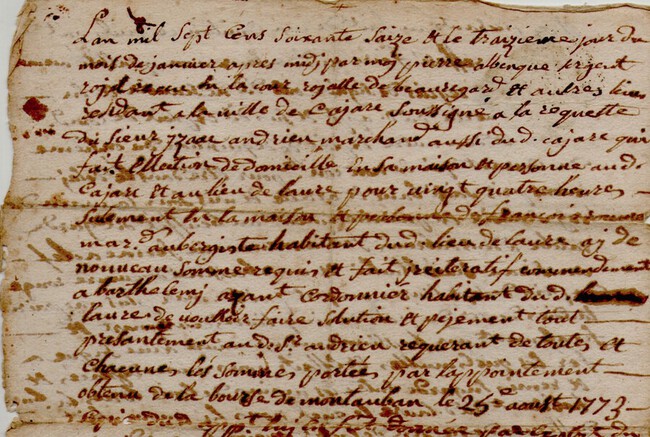 Lan mil sept cens soixante saize et le traizieme jour du
mois de janvier apres midj par moj pierre albenque sergent
rojal en la cour rojalle de beauregard et autres lieux
residant a la ville de Cajarc soussigné a la requette
du sieur jzaac andrieu marchand aussi du d. cajarc qui
fait ellection de domicille en sa maison et personne aud.
Cajarc et au lieu de laure pour vingt quatre heures
sulement en la maison et personne de françois
mar.d aubergiste habitant dud. lieu de laure aj de
nouveau sommé requis et fait jreiteratif commendement
a barthelemj ajant cordonnier habitant du d.
laure de voulloir faire solution et pejement tout
presantement aud. Sr. andrieu requerant de toutes et
chacunes les sommes portées par lappointement
obtenu de la bourse de montauban le 25e aoust 1773